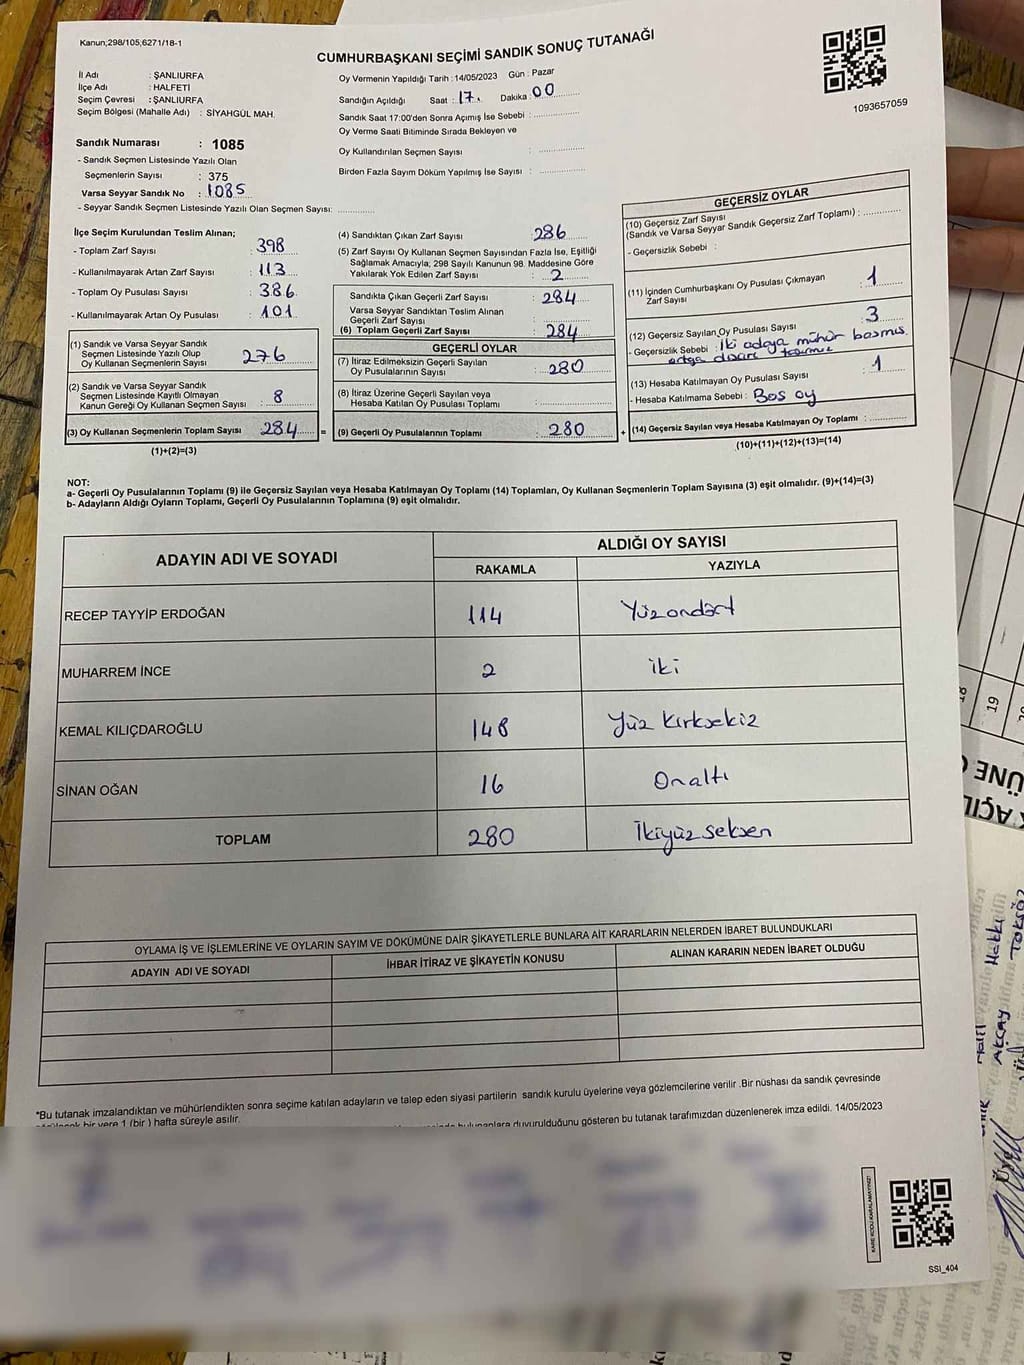 Kanun;298/105,6271/18-1
CUMHURBAŞKANI SEÇİMİ SANDIK SONUÇ TUTANAĞI
İl Adı : ŞANLIURFA
İlçe Adı : HALFETİ
Seçim Çevresi : ŞANLIURFA
Seçim Bölgesi (Mahalle Adı) : SİYAHGÜL MAH.
Oy Vermenin Yapıldığı Tarih : 14/05/2023 Gün : Pazar
Sandığın Açıldığı Saat : 17. Dakika : 00
Sandık Saat 17:00'den Sonra Açımış İse Sebebi :
Oy Verme Saati Bitiminde Sırada Bekleyen ve
Oy Kullandırılan Seçmen Sayısı :
Birden Fazla Sayım Döküm Yapılmış İse Sayısı :
1093657059
Sandık Numarası : 1085
- Sandık Seçmen Listesinde Yazılı Olan
Seçmenlerin Sayısı : 375
Varsa Seyyar Sandık No : 1085
- Seyyar Sandık Seçmen Listesinde Yazılı Olan Seçmen Sayısı:
İlçe Seçim Kurulundan Teslim Alınan;
- Toplam Zarf Sayısı : 398
- Kullanılmayarak Artan Zarf Sayısı : 113
- Toplam Oy Pusulası Sayısı : 386
- Kullanılmayarak Artan Oy Pusulası : 101
(1) Sandık ve Varsa Seyyar Sandık
Seçmen Listesinde Yazılı Olup
Oy Kullanan Seçmenlerin Sayısı : 276
(2) Sandık ve Varsa Seyyar Sandık
Seçmen Listesinde Kayıtlı Olmayan
Kanun Gereği Oy Kullanan Seçmen Sayısı : 8
(3) Oy Kullanan Seçmenlerin Toplam Sayısı : 284
(1)+(2)=(3)
(4) Sandıktan Çıkan Zarf Sayısı : 286
(5) Zarf Sayısı Oy Kullanan Seçmen Sayısından Fazla İse, Eşitliği
Sağlamak Amacıyla; 298 Sayılı Kanunun 98. Maddesine Göre
Yakılarak Yok Edilen Zarf Sayısı : 2
Sandıkta Çıkan Geçerli Zarf Sayısı : 284
Varsa Seyyar Sandıktan Teslim Alınan
Geçerli Zarf Sayısı :
(6) Toplam Geçerli Zarf Sayısı : 284
GEÇERLİ OYLAR
(7) İtiraz Edilmeksizin Geçerli Sayılan
Oy Pusulalarının Sayısı : 280
(8) İtiraz Üzerine Geçerli Sayılan veya
Hesaba Katılan Oy Pusulaları Toplamı :
= (9) Geçerli Oy Pusulalarının Toplamı : 280
GEÇERSİZ OYLAR
(10) Geçersiz Zarf Sayısı
(Sandık ve Varsa Seyyar Sandık Geçersiz Zarf Toplamı) :
- Geçersizlik Sebebi :
(11) İçinden Cumhurbaşkanı Oy Pusulası Çıkmayan
Zarf Sayısı : 1
(12) Geçersiz Sayılan Oy Pusulası Sayısı : 3
- Geçersizlik Sebebi : İki adaya mühür basmış
dışarı taşırmış
(13) Hesaba Katılmayan Oy Pusulası Sayısı : 1
- Hesaba Katılmama Sebebi : Boş oy
+ (14) Geçersiz Sayılan veya Hesaba Katılmayan Oy Toplamı :
(10)+(11)+(12)+(13)=(14)
NOT:
a- Geçerli Oy Pusulalarının Toplamı (9) ile Geçersiz Sayılan veya Hesaba Katılmayan Oy Toplamı (14) Toplamları, Oy Kullanan Seçmenlerin Toplam Sayısına (3) eşit olmalıdır. (9)+(14)=(3)
b- Adayların Aldığı Oyların Toplamı, Geçerli Oy Pusulalarının Toplamına (9) eşit olmalıdır.
ADAYIN ADI VE SOYADI ALDIĞI OY SAYISI
RAKAMLA YAZIYLA
RECEP TAYYİP ERDOĞAN 114 Yüzondört
MUHARREM İNCE 2 iki
KEMAL KILIÇDAROĞLU 148 Yüz kırksekiz
SİNAN OĞAN 16 Onaltı
TOPLAM 280 İkiyüz seksen
OYLAMA İŞ VE İŞLEMLERİNE VE OYLARIN SAYIM VE DÖKÜMÜNE DAİR ŞİKAYETLERLE BUNLARA AİT KARARLARIN NELERDEN İBARET BULUNDUKLARI
ADAYIN ADI VE SOYADI İHBAR İTİRAZ VE ŞİKAYETİN KONUSU ALINAN KARARIN NEDEN İBARET OLDUĞU
*Bu tutanak imzalandıktan ve mühürlendikten sonra seçime katılan adayların ve talep eden siyasi partilerin sandık kurulu üyelerine veya gözlemcilerine verilir .Bir nüshası da sandık çevresinde
bir yere 1 (bir ) hafta süreyle asılır.
duyurulduğunu gösteren bu tutanak tarafımızdan düzenlenerek imza edildi. 14/05/2023
KARE KODU KARALAMAYINIZ!
SSI_404
18
19
Halil
Akçay
Hakkı
TOKGÖZ
Üye